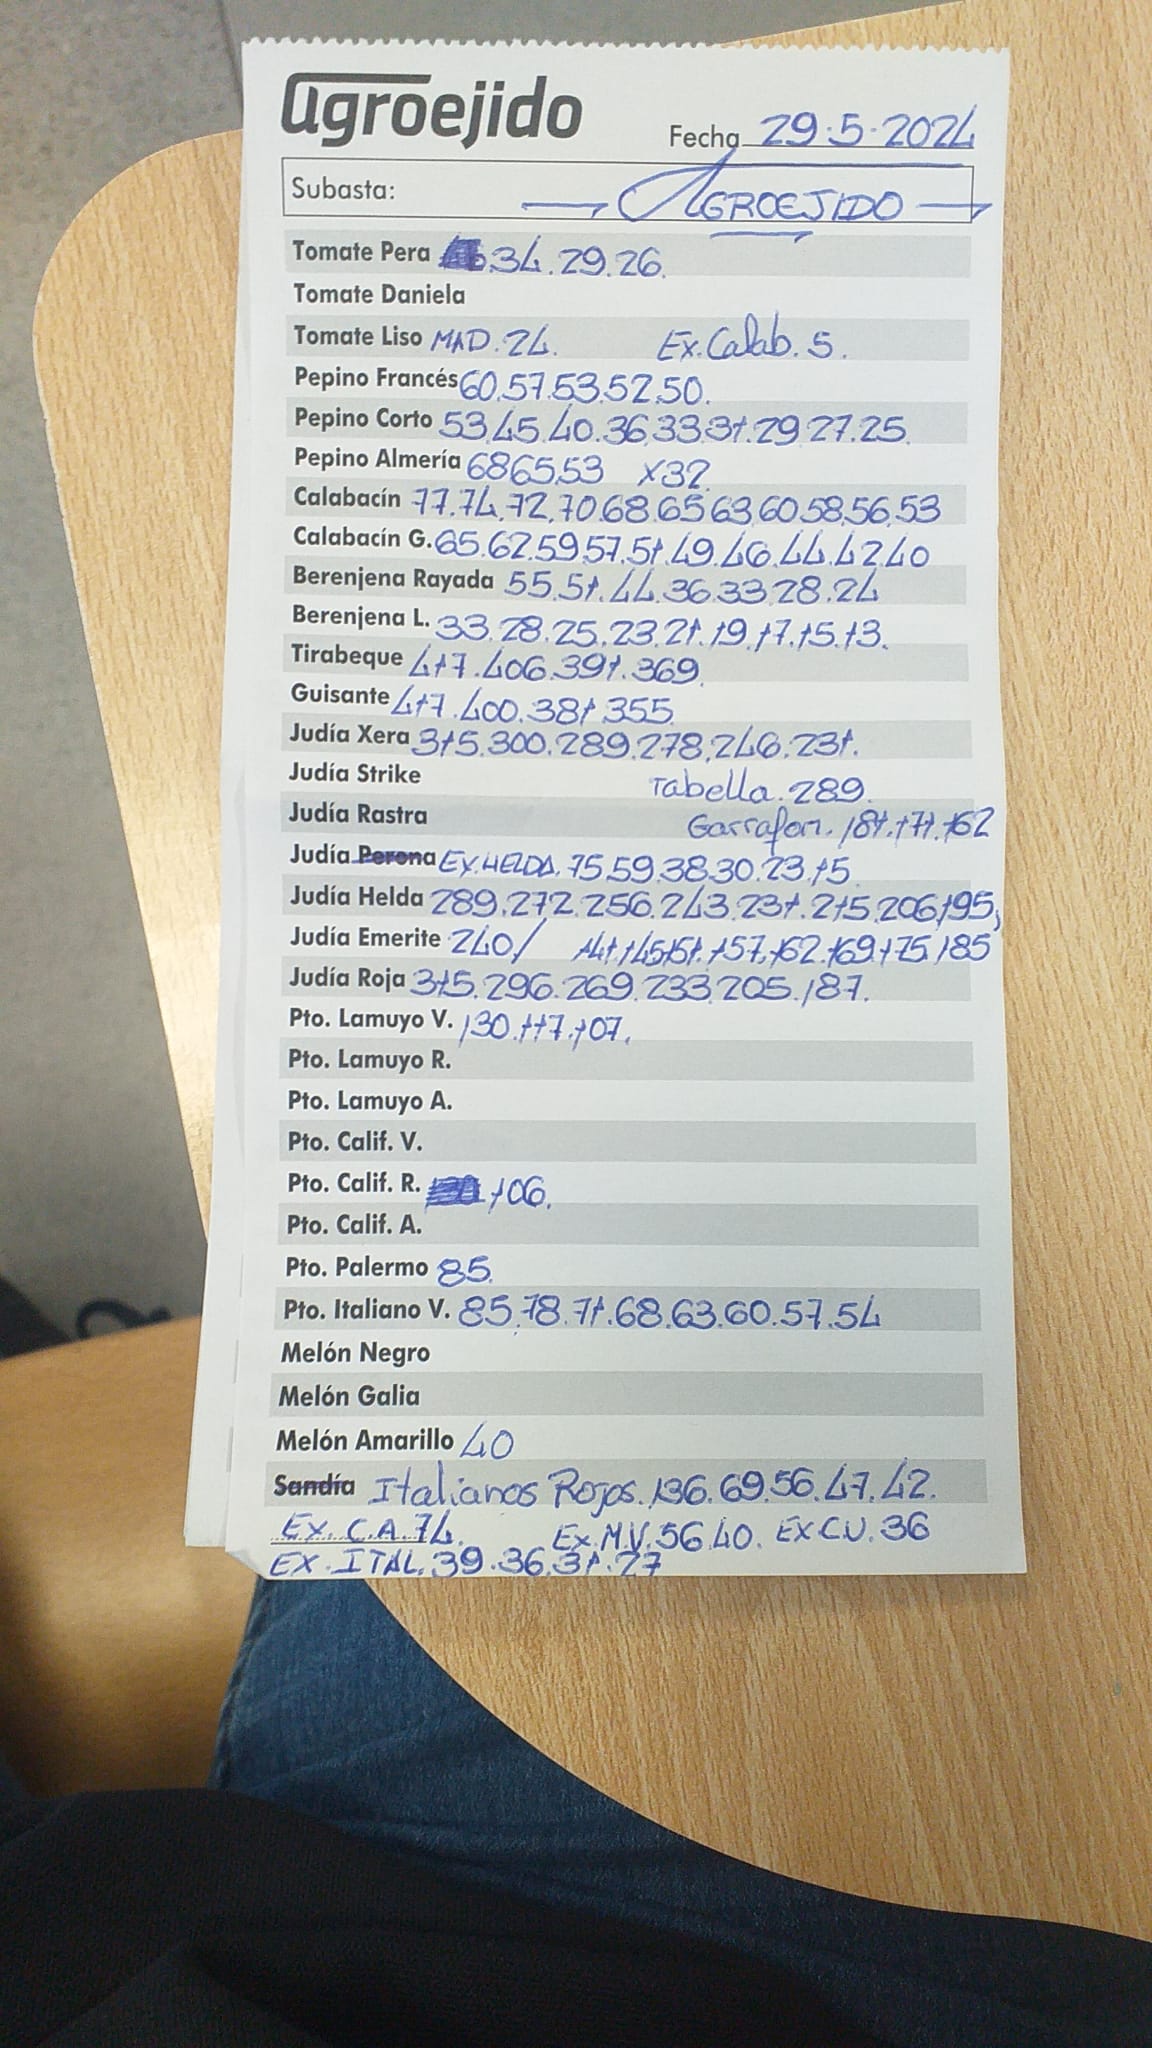 agroejido
Fecha 29.5.2024
Subasta: AGROEJIDO
Tomate Pera 34.29.26.
Tomate Daniela
Tomate Liso MAD.24. Ex.Calab.5.
Pepino Francés 60.57.53.52.50.
Pepino Corto 53.45.40.36.33.31.29.27.25.
Pepino Almería 68.65.53 X32.
Calabacín 77.74.72.70.68.65.63.60.58.56.53
Calabacín G. 65.62.59.57.51.49.46.44.42.40
Berenjena Rayada 55.51.44.36.33.28.24
Berenjena L. 33.28.25.23.21.19.17.15.13.
Tirabeque 417.406.391.369.
Guisante 417.400.381.355.
Judía Xera 315.300.289.278.246.231.
Judía Strike Tabella.289.
Judía Rastra Garrafon.181.171.162
Judía Perona EX.HELDA.75.59.38.30.23.15.
Judía Helda 289.272.256.243.231.215.206.195,
Judía Emerite 240/ 141.145.151.157.162.169.175.185
Judía Roja 315.296.269.233.205.187.
Pto. Lamuyo V. 130.117.107.
Pto. Lamuyo R.
Pto. Lamuyo A.
Pto. Calif. V.
Pto. Calif. R. 106.
Pto. Calif. A.
Pto. Palermo 85.
Pto. Italiano V. 85.78.71.68.63.60.57.54
Melón Negro
Melón Galia
Melón Amarillo 40
Sandía Italianos Rojos.136.69.56.47.42.
Ex.C.A.74. Ex.M.V.56.40. EX C.U.36
EX.ITAL.39.36.31.27